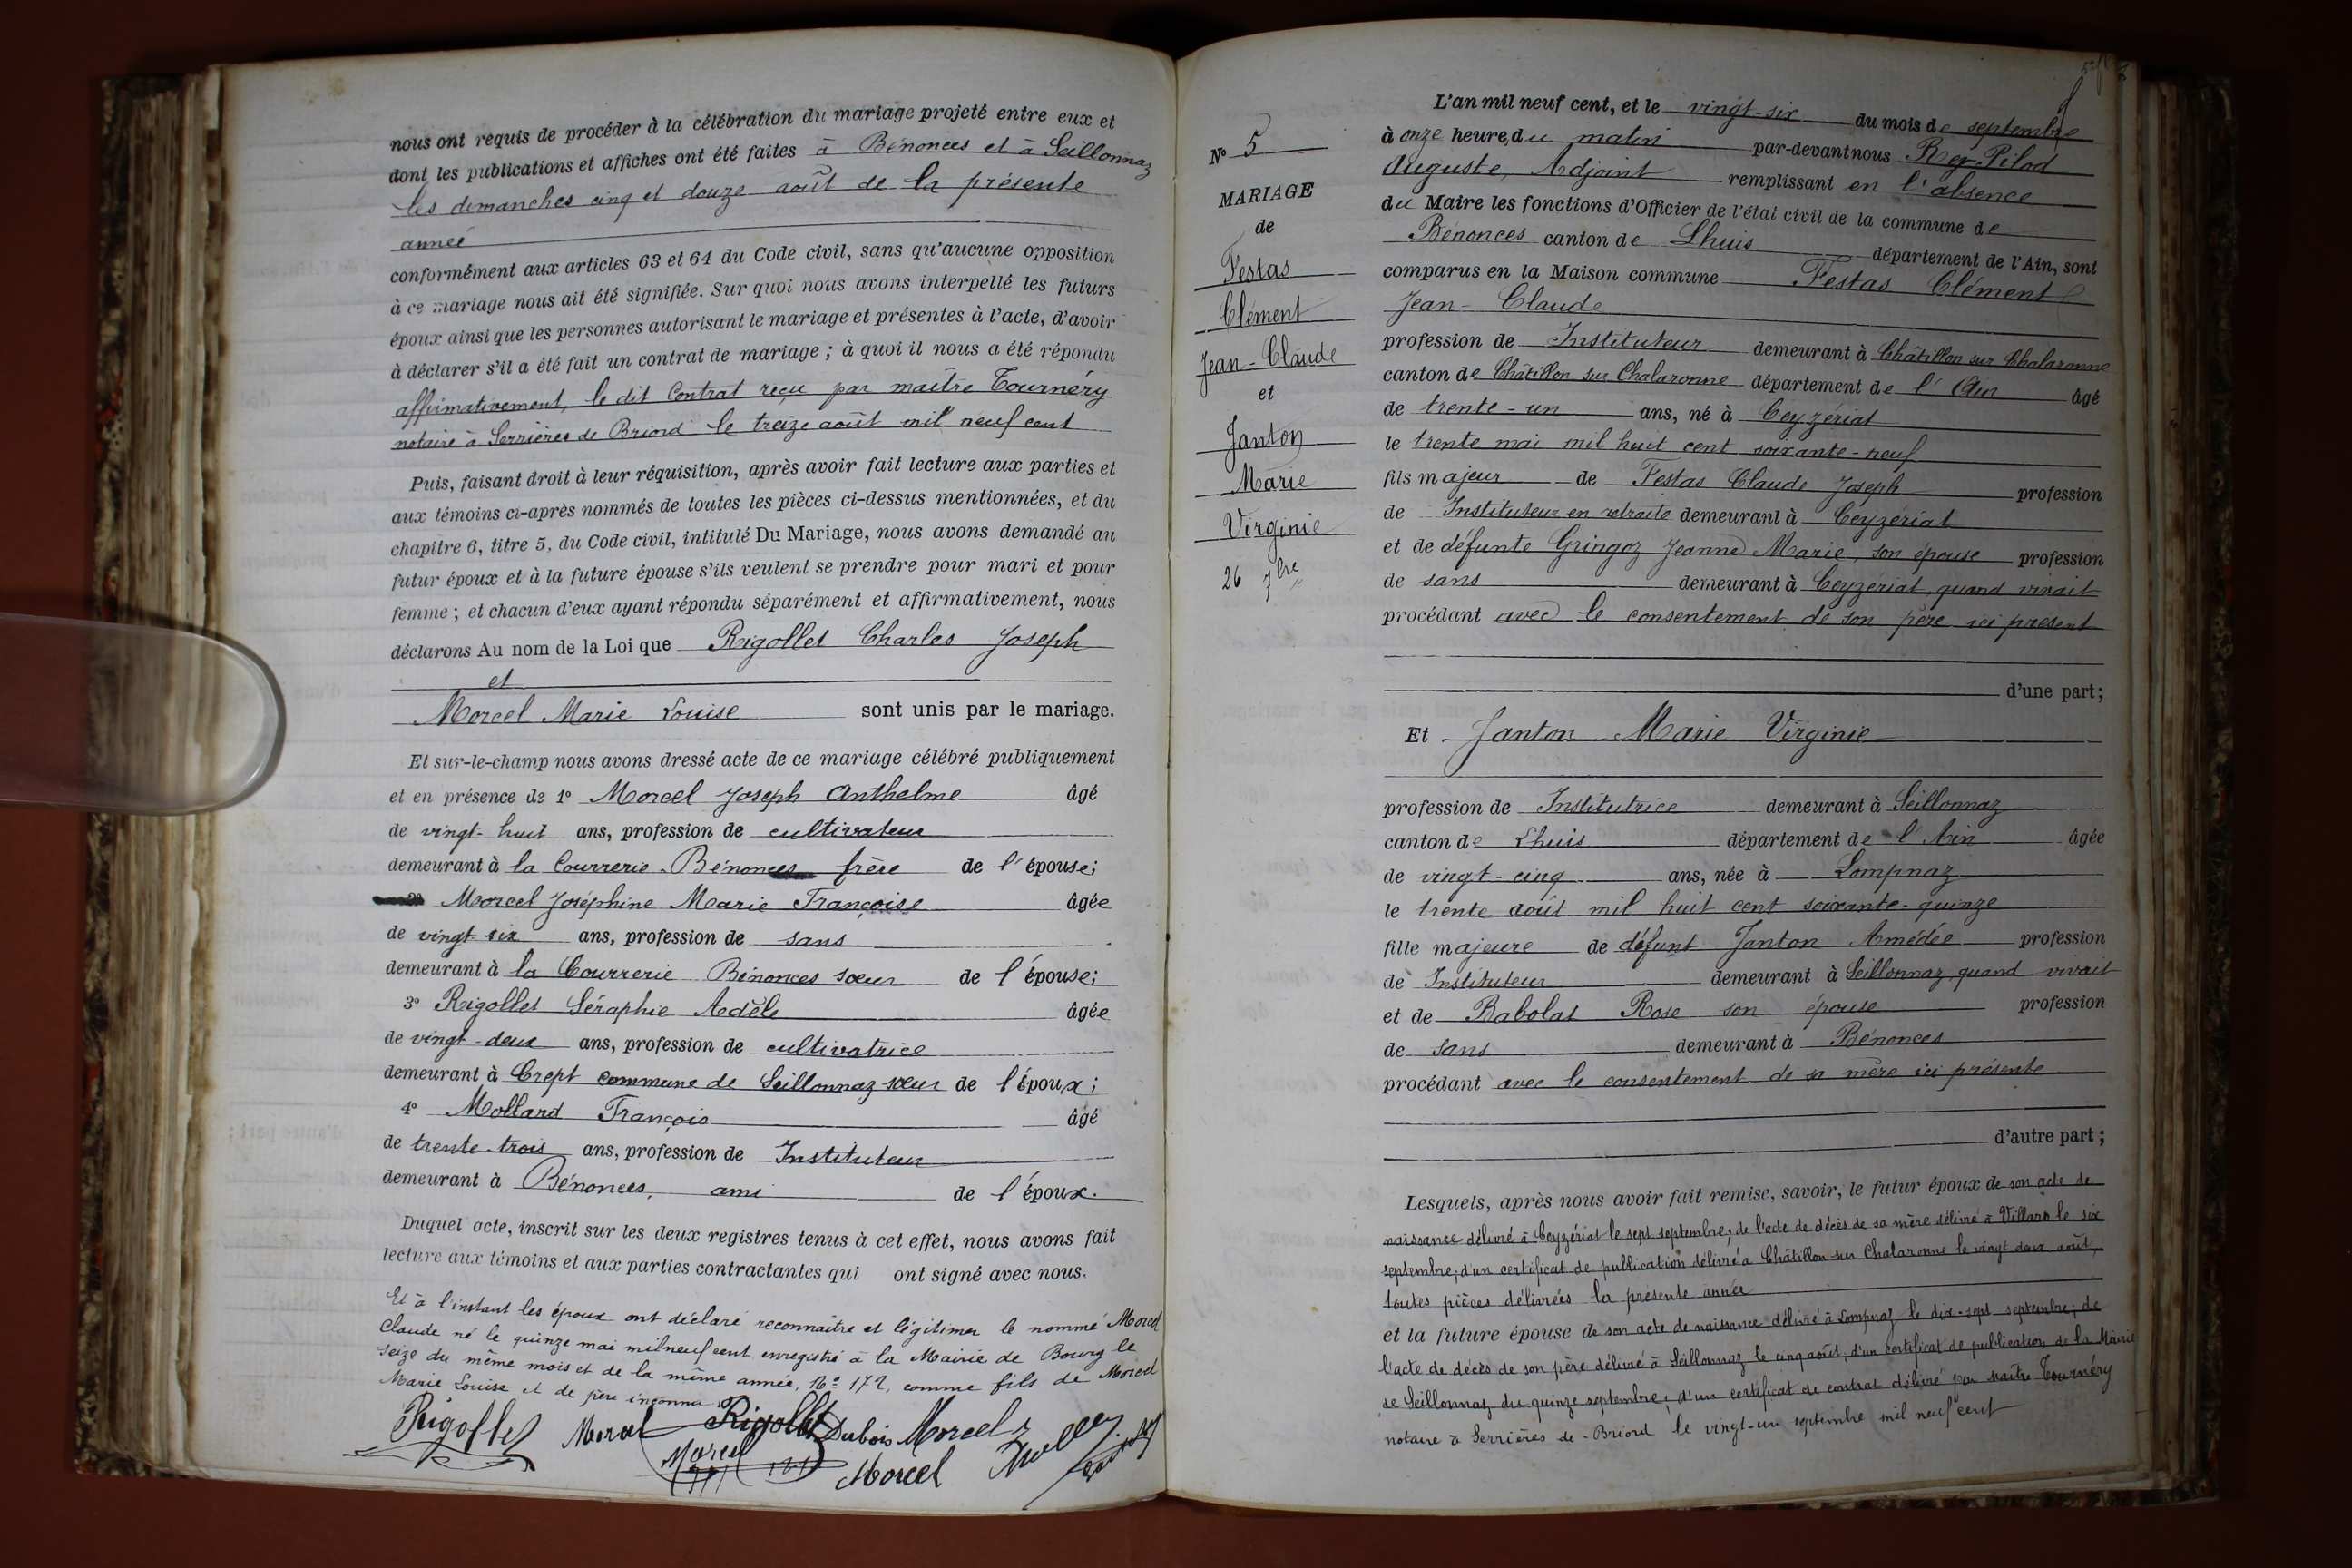 nous ont requis de procéder à la célébration du mariage projeté entre eux et
dont les publications et affiches ont été faites à Bénonces et à Seillonnaz
les dimanches cinq et douze août de la présente
année
conformément aux articles 63 et 64 du Code civil, sans qu'aucune opposition
à ce mariage nous ait été signifiée. Sur quoi nous avons interpellé les futurs
époux ainsi que les personnes autorisant le mariage et présentes à l'acte, d'avoir
à déclarer s'il a été fait un contrat de mariage ; à quoi il nous a été répondu
affirmativement, le dit Contrat reçu par maître Tournéry
notaire à Serrières de Briord le treize août mil neuf cent
Puis, faisant droit à leur réquisition, après avoir fait lecture aux parties et
aux témoins ci-après nommés de toutes les pièces ci-dessus mentionnées, et du
chapitre 6, titre 5, du Code civil, intitulé Du Mariage, nous avons demandé au
futur époux et à la future épouse s'ils veulent se prendre pour mari et pour
femme ; et chacun d'eux ayant répondu séparément et affirmativement, nous
déclarons Au nom de la Loi que Rigollet Charles Joseph
et
Morcel Marie Louise sont unis par le mariage.
Et sur-le-champ nous avons dressé acte de ce mariage célébré publiquement
et en présence de 1° Morcel Joseph Anthelme âgé
de vingt-huit ans, profession de cultivateur
demeurant à la Courrerie-Bénonces frère de l'épouse;
2° Morcel Joséphine Marie Françoise âgée
de vingt six ans, profession de sans
demeurant à la Courrerie Bénonces sœur de l'épouse;
3° Rigollet Séraphie Adèle âgée
de vingt-deux ans, profession de cultivatrice
demeurant à Crept commune de Seillonnaz sœur de l'époux;
4° Mollard François âgé
de trente-trois ans, profession de Instituteur
demeurant à Bénonces, ami de l'époux.
Duquel acte, inscrit sur les deux registres tenus à cet effet, nous avons fait
lecture aux témoins et aux parties contractantes qui ont signé avec nous.
Et à l'instant les époux ont déclaré reconnaître et légitimer le nommé Morcel
Claude né le quinze mai mil neuf cent enregistré à la Mairie de Bourg le
seize du même mois et de la même année, N° 172, comme fils de Morcel
Marie Louise et de père inconnu
Rigollet Morcel Rigollet Dubois Morcel
Morcel Morcel
N° 5
MARIAGE
de
Festas
Clément
Jean-Claude
et
Janton
Marie
Virginie
26 7bre
L'an mil neuf cent, et le vingt-six du mois de septembre
à onze heure, du matin par-devant nous Rey-Pilod
Auguste, Adjoint remplissant en l'absence
du Maire les fonctions d'Officier de l'état civil de la commune de
Bénonces canton de Lhuis département de l'Ain, sont
comparus en la Maison commune Festas Clément
Jean-Claude
profession de Instituteur demeurant à Châtillon sur Chalaronne
canton de Châtillon sur Chalaronne département de l'Ain âgé
de trente-un ans, né à Ceyzériat
le trente mai mil huit cent soixante-neuf
fils majeur de Festas Claude Joseph profession
de Instituteur en retraite demeurant à Ceyzériat
et de défunte Gringoz Jeanne Marie, son épouse profession
de sans demeurant à Ceyzériat, quand vivait
procédant avec le consentement de son père ici présent
d'une part;
Et Janton Marie Virginie
profession de Institutrice demeurant à Seillonnaz
canton de Lhuis département de l'Ain âgée
de vingt-cinq ans, née à Lompnaz
le trente août mil huit cent soixante-quinze
fille majeure de défunt Janton Amédée profession
de Instituteur demeurant à Seillonnaz, quand vivait
et de Babolat Rose son épouse profession
de sans demeurant à Bénonces
procédant avec le consentement de sa mère ici présente
d'autre part;
Lesquels, après nous avoir fait remise, savoir, le futur époux de son acte de
naissance délivré à Ceyzériat le sept septembre; de l'acte de décès de sa mère délivré à Villars le six
septembre; d'un certificat de publication délivré à Châtillon sur Chalaronne le vingt deux août,
toutes pièces délivrées la présente année
et la future épouse de son acte de naissance délivré à Lompnaz le dix-sept septembre; de
l'acte de décès de son père délivré à Seillonnaz le cinq août, d'un certificat de publication de la Mairie
de Seillonnaz du quinze septembre; d'un certificat de contrat délivré par maître Tournéry
notaire à Serrières-de-Briord le vingt-un septembre mil neuf cent